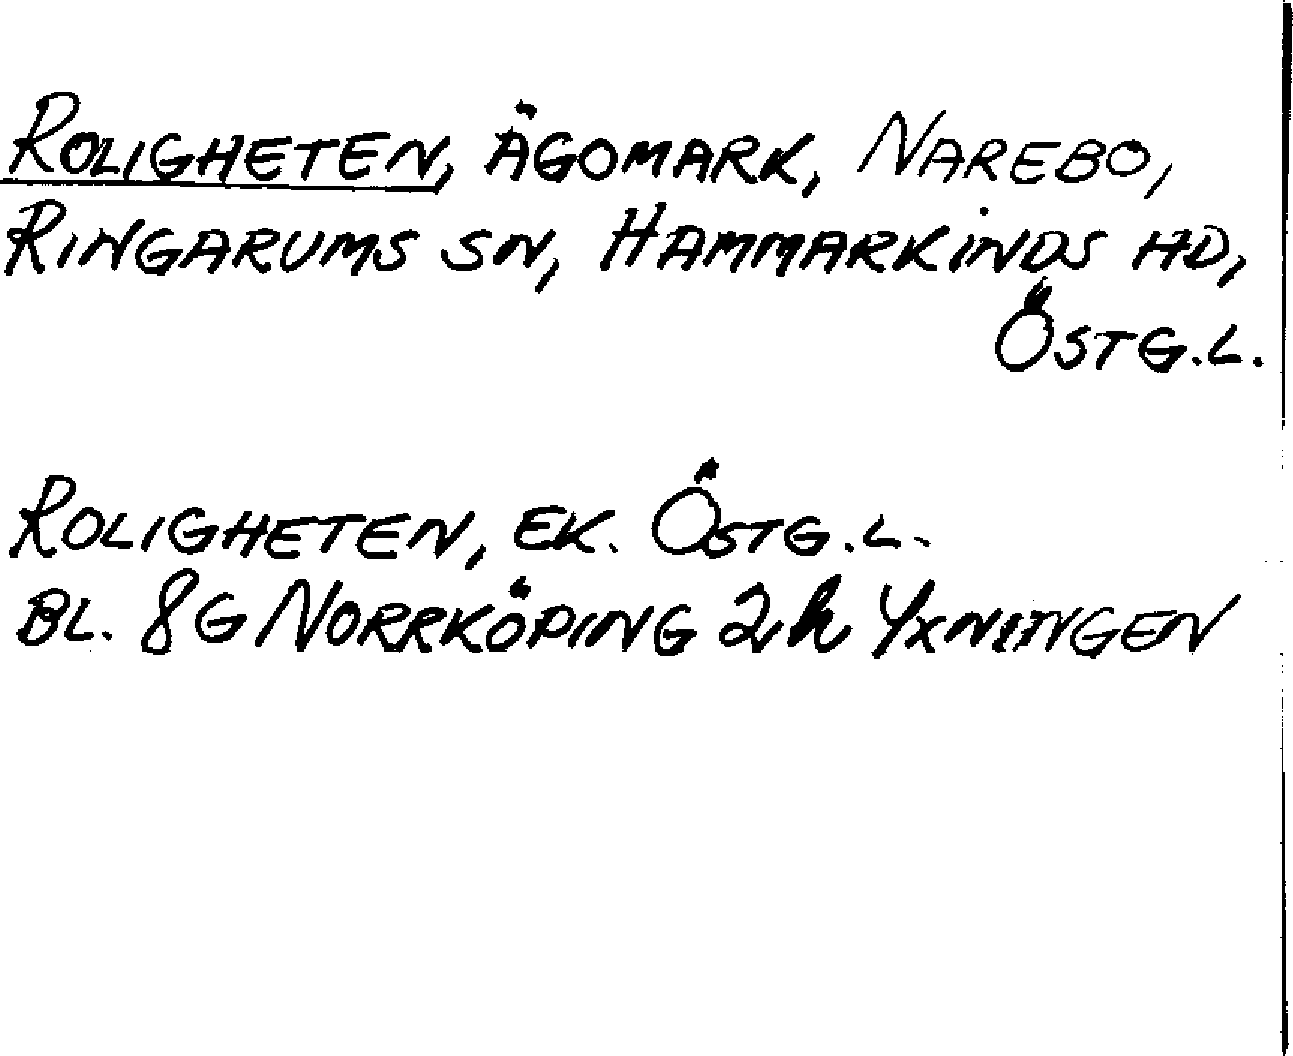 ROLIGHETEN, ÄGOMARK, NAREBO,
RINGARUMS SN, HAMMARKINDS HD,
ÖSTG.L.
ROLIGHETEN, EK. ÖSTG.L.
BL. 8G NORRKÖPING 2h YXNINGEN